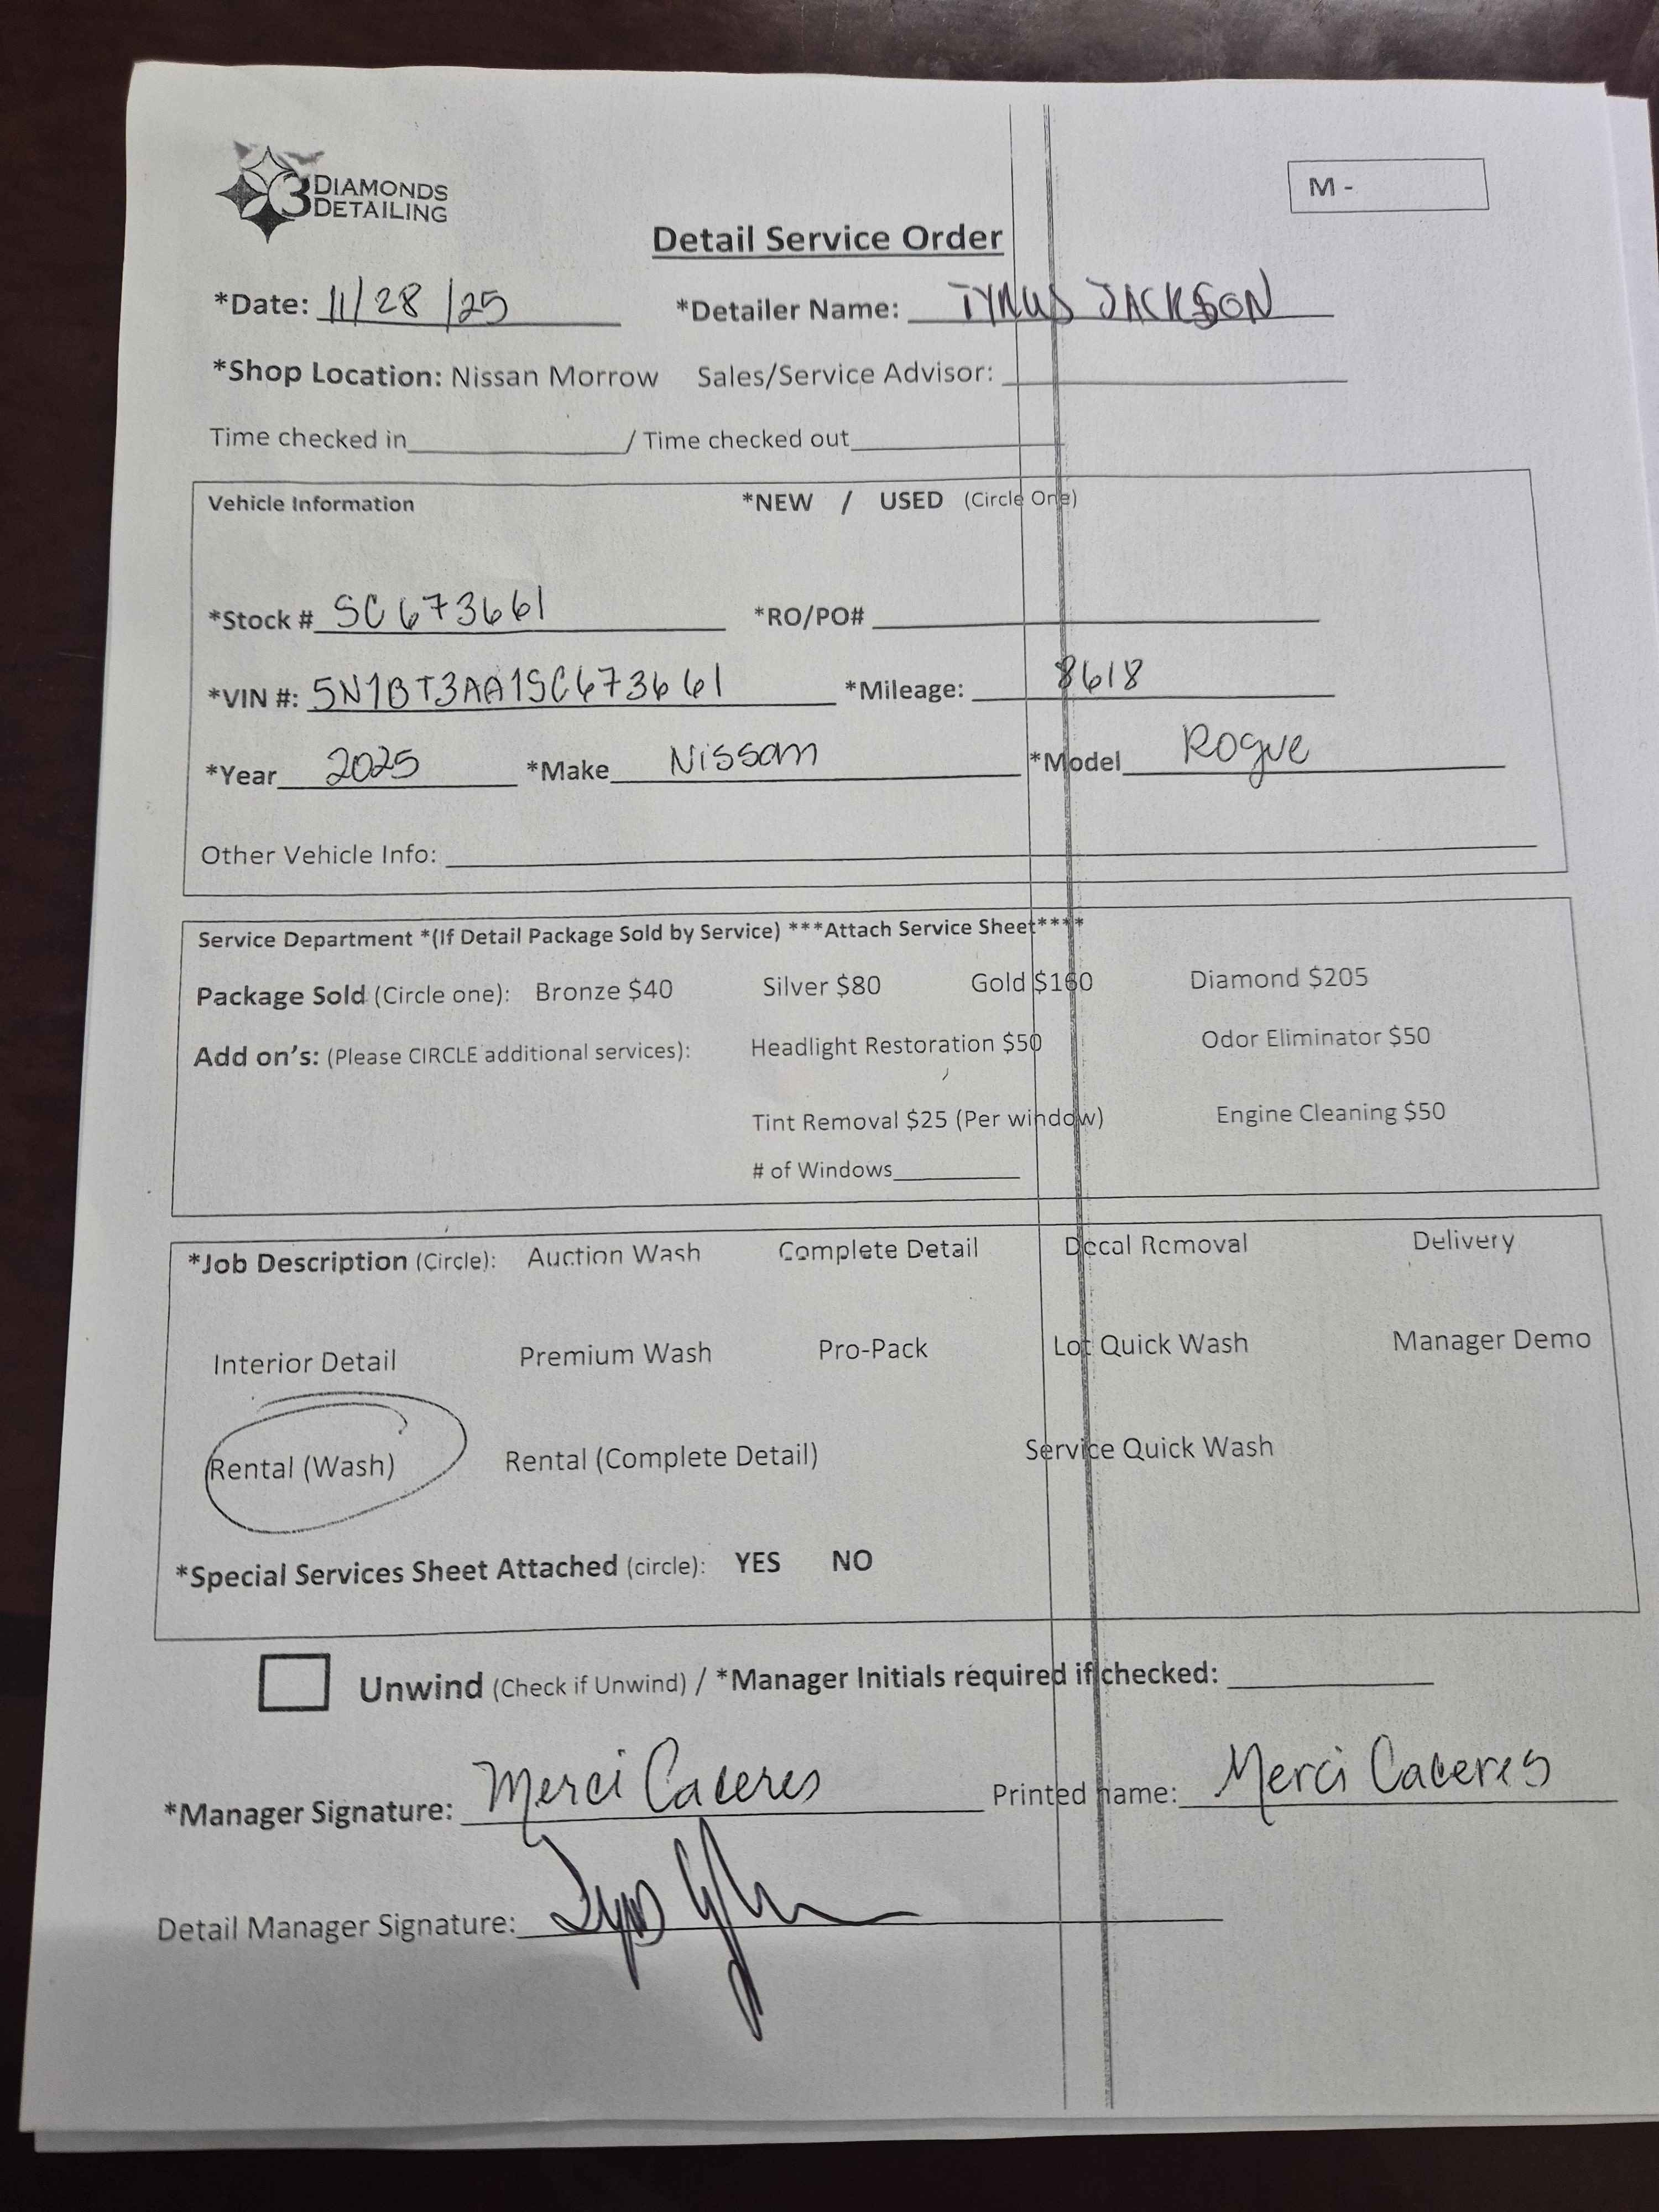 3 DIAMONDS
DETAILING
M -
Detail Service Order
*Date: 11/28/25 *Detailer Name: TYRUS JACKSON
*Shop Location: Nissan Morrow Sales/Service Advisor:
Time checked in / Time checked out
Vehicle Information *NEW / USED (Circle One)
*Stock # SC673661 *RO/PO#
*VIN #: 5N1BT3AA1SC673661 *Mileage: 8618
*Year 2025 *Make Nissan *Model Rogue
Other Vehicle Info:
Service Department *(If Detail Package Sold by Service) ***Attach Service Sheet****
Package Sold (Circle one): Bronze $40 Silver $80 Gold $160 Diamond $205
Add on's: (Please CIRCLE additional services): Headlight Restoration $50 Odor Eliminator $50
Tint Removal $25 (Per window) Engine Cleaning $50
# of Windows
*Job Description (Circle): Auction Wash Complete Detail Decal Removal Delivery
Interior Detail Premium Wash Pro-Pack Lot Quick Wash Manager Demo
Rental (Wash) Rental (Complete Detail) Service Quick Wash
*Special Services Sheet Attached (circle): YES NO
Unwind (Check if Unwind) / *Manager Initials required if checked:
*Manager Signature: Merci Caceres Printed name: Merci Caceres
Detail Manager Signature: